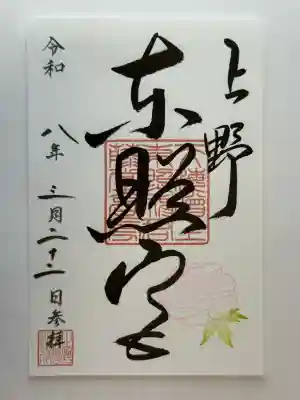 上野
東照宮
令和八年三月二十二日参拝